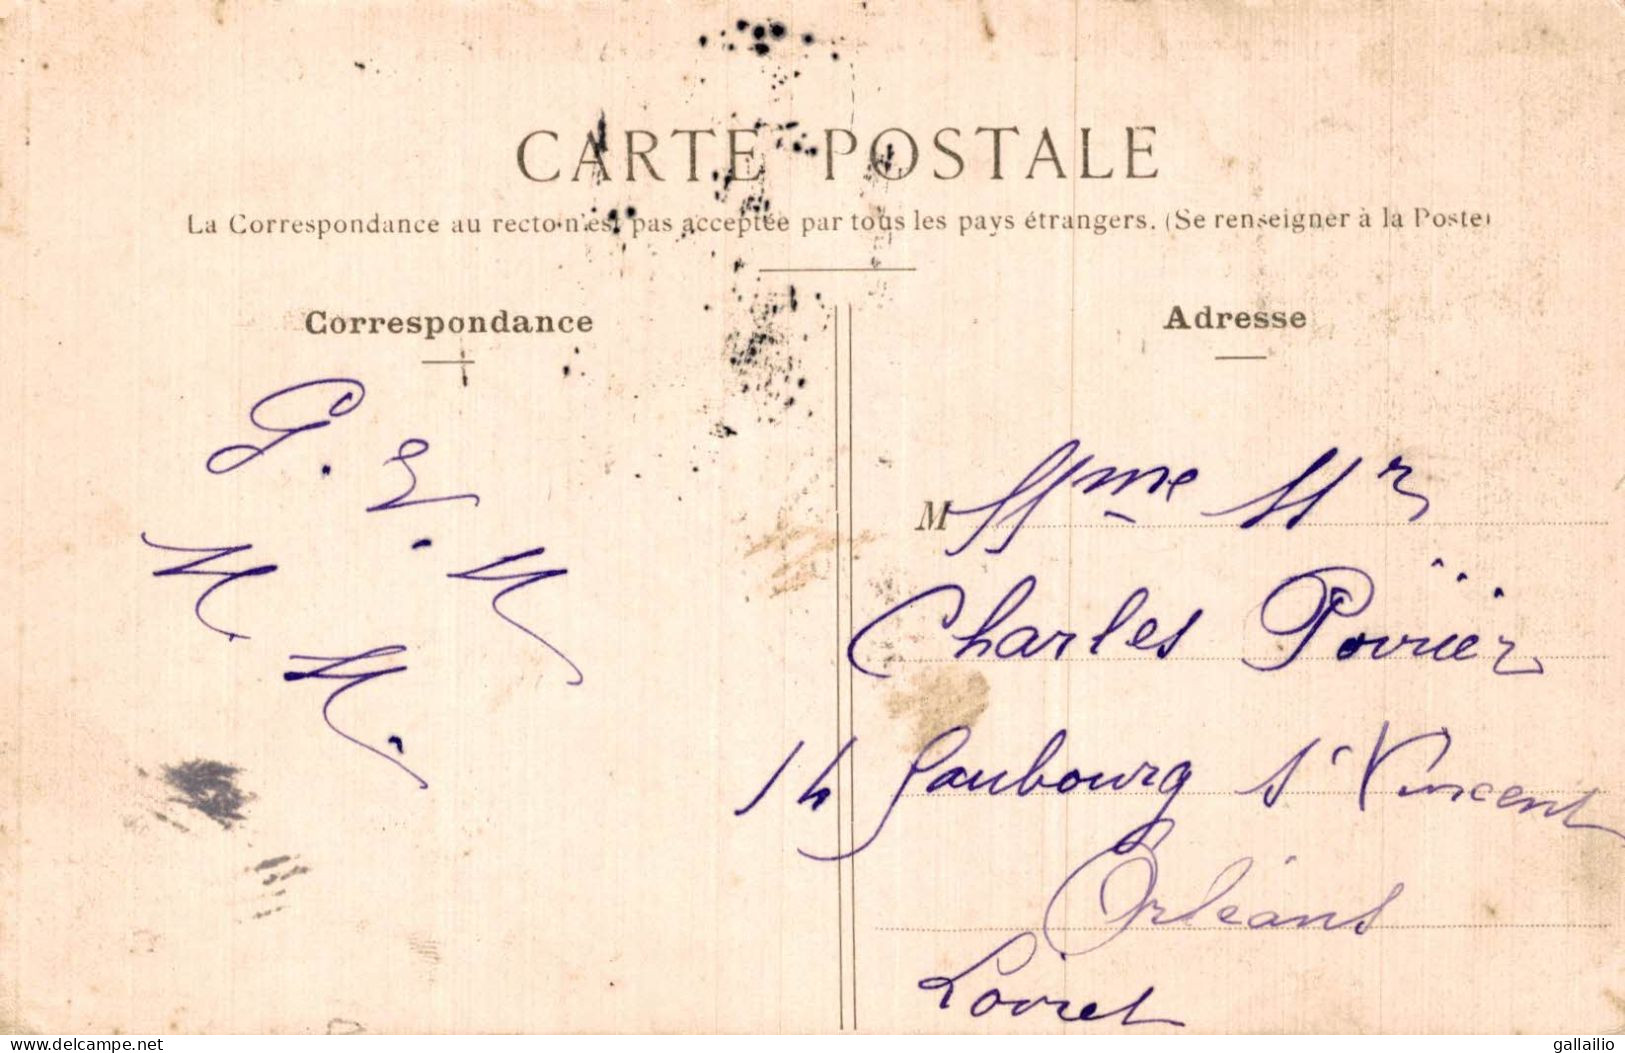 CARTE POSTALE
La Correspondance au recto n'est pas acceptée par tous les pays étrangers. (Se renseigner à la Poste)
Correspondance
G. E.
M. M
M.
Adresse
M Mme Mr
Charles Poirier
14 faubourg St Vincent
Orléans
Loiret
www.delcampe.net
gallailio